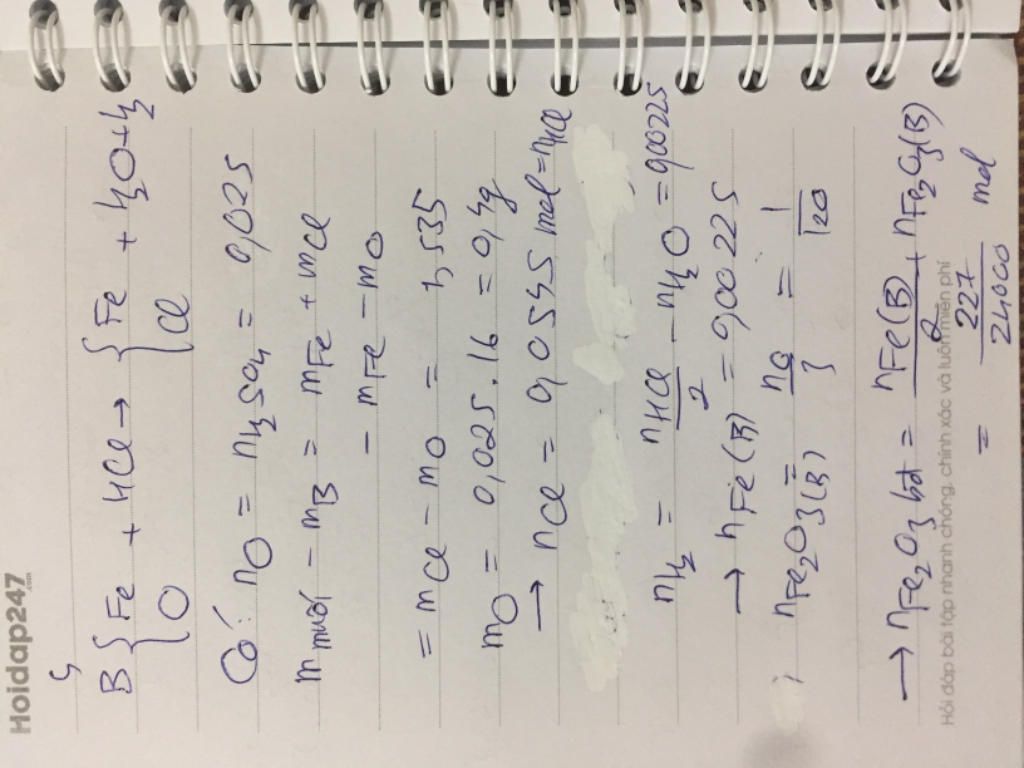 Hoidap247.com
B {Fe + HCl → {Fe + H₂O + H₂
O Cl
Có: nO = nH₂SO₄ = 0,025
m muối - mB = mFe + mCl
- mFe - mO
= mCl - mO = 1,535
mO = 0,025.16 = 0,4g
→ nCl = 0,0545 mol = nHCl
nH₂ = nHCl/2 - nH₂O = 0,00225
→ nFe(B) = 0,00225
; nFe₂O₃(B) = nO/3 = 1/120
→ nFe₂O₃ bđ = nFe(B)/2 + nFe₂O₃(B)
= 227/24000 mol
Hỏi đáp bài tập nhanh chóng, chính xác và luôn miễn phí